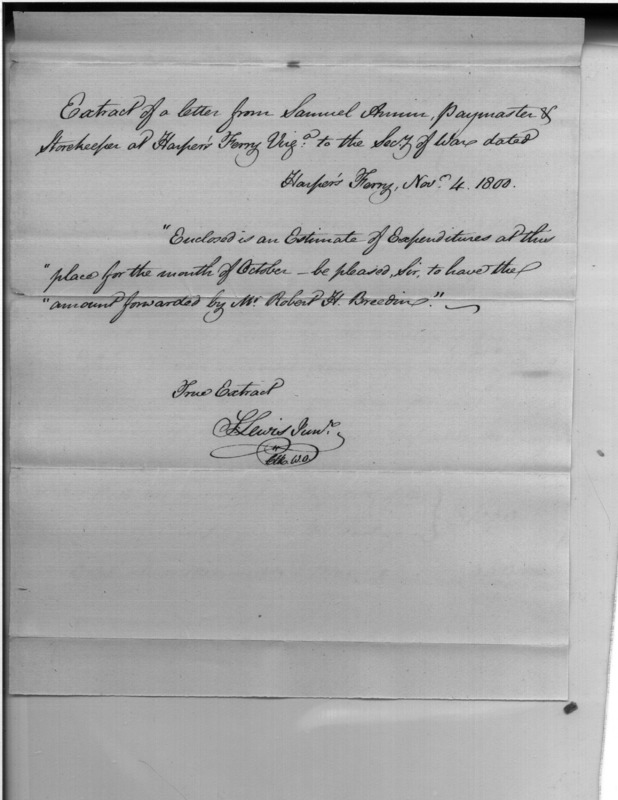 Extract of a letter from Samuel Annin, paymaster &
Storekeeper at Harper's Ferry Virga. to the Secy of War dated
Harper's Ferry, Novr. 4. 1800.
"Enclosed is an Estimate of Expenditures at this
"place for the month of October – be pleased, Sir, to have the
"amount forwarded by Mr. Robert H. Breedin."
True Extract
Lewis Junr.
Clk W.O